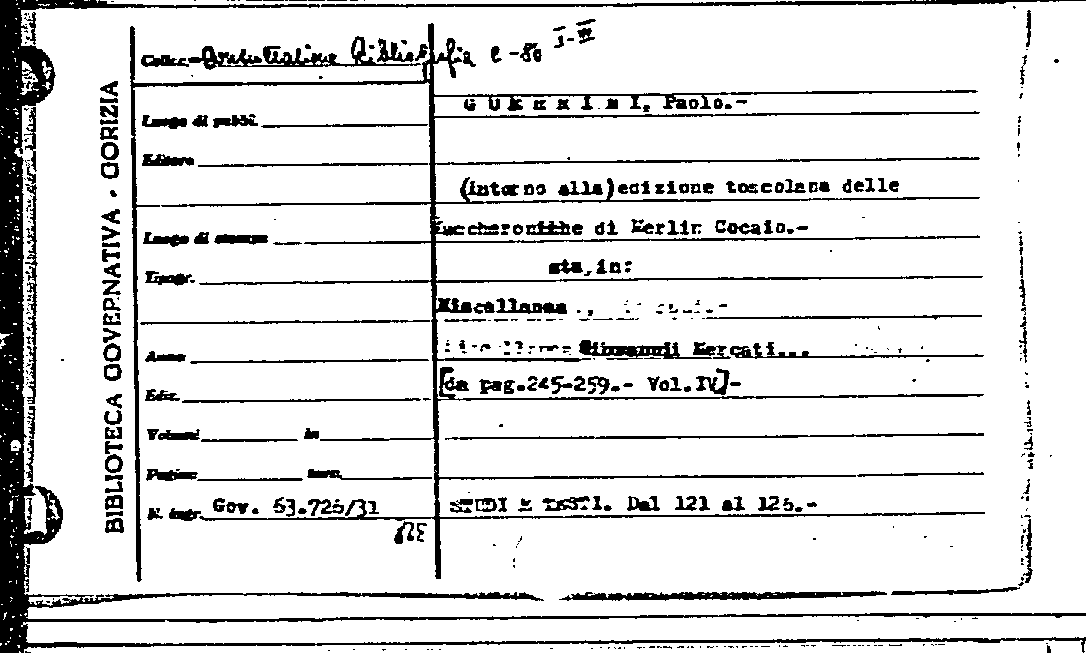 BIBLIOTECA GOVERNATIVA - GORIZIA
Colloc. Bibliografia C-80 I-IV
GUERRINI, Paolo.-
Luogo di pubbl.
Editore
(intorno alla)edizione toscolana delle
Luogo di stampa
Maccheroniche di Merlin Cocaio.-
Tipogr.
sta,in:
Miscellanea
Anno
Giovanni Mercati...
[da pag.245-259.- Vol.IV]-
Ediz.
Volumi in
Pagine
N. ingr. Gov. 63.726/31
STUDI E TESTI. Dal 121 al 126.-